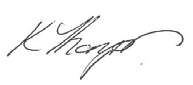 K Thorpe